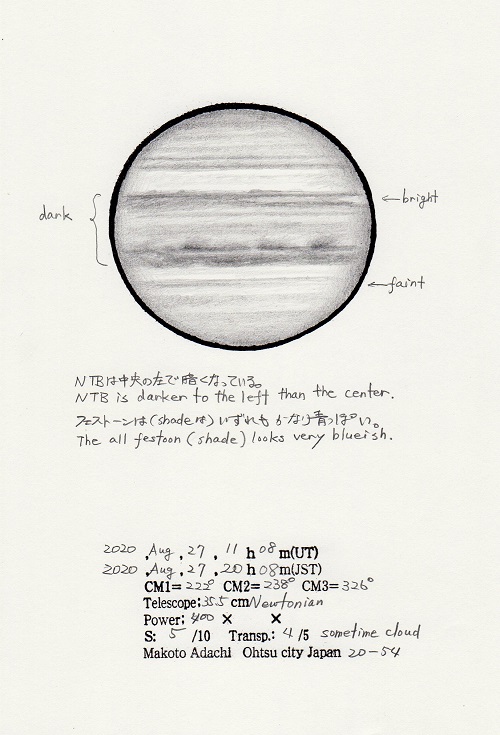 dark
bright
faint
NTBは中央の左で暗くなっている。
NTB is darker to the left than the center.
フェストーンは(shadeは)いずれもかなり青っぽい。
The all festoon (shade) looks very blueish.
2020 , Aug , 27 , 11 h 08 m(UT)
2020 , Aug , 27 , 20 h 08 m(JST)
CM1= 222° CM2= 238° CM3= 326°
Telescope: 35.5 cm Newtonian
Power: 400 × ×
S: 5 /10 Transp.: 4 /5 sometime cloud
Makoto Adachi Ohtsu city Japan 20-54